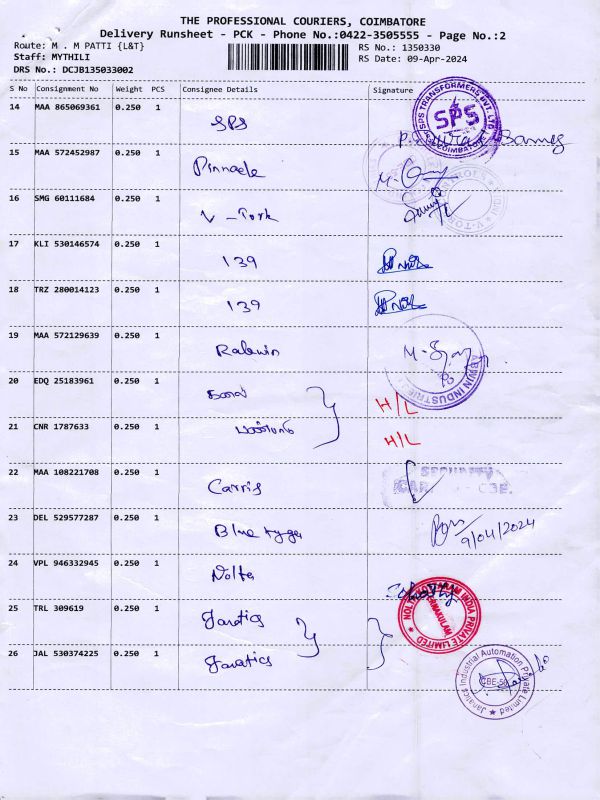 THE PROFESSIONAL COURIERS, COIMBATORE
Delivery Runsheet - PCK - Phone No.:0422-3505555 - Page No.:2
Route: M . M PATTI {L&T}
RS No.: 1350330
Staff: MYTHILI
RS Date: 09-Apr-2024
DRS No.: DCJB135033002
S No Consignment No Weight PCS Consignee Details Signature
14 MAA 865069361 0.250 1 SPS
SPS TRANSFORMERS PVT. LTD. SPS COIMBATORE
15 MAA 572452987 0.250 1 Pinnacle
16 SMG 60111684 0.250 1 V-Tork
17 KLI 530146574 0.250 1 139
18 TRZ 280014123 0.250 1 139
19 MAA 572129639 0.250 1 Rabwin
ABWIN INDUSTRIE
20 EDQ 25183961 0.250 1 H/L
21 CNR 1787633 0.250 1 H/L
22 MAA 108221708 0.250 1 Carris
SECURITY
23 DEL 529577287 0.250 1 Blue tyga 9/04/2024
24 VPL 946332945 0.250 1 Nolta
INDIA PRIVATE LIMITED
25 TRL 309619 0.250 1 Janatics
26 JAL 530374225 0.250 1 Janatics
Janatics Industrial Automation Private Limited CBE-50